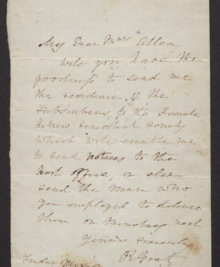 My Dear Mrs Allen
Will you have the
goodness to send me
the residences of the
subscribers to the Female
Hebrew Benevolent Society
which will enable me
to send notices to the
Post Office, or else
send the man who
you employed to deliver
them on Monday next
Yours sincerely
R Gratz